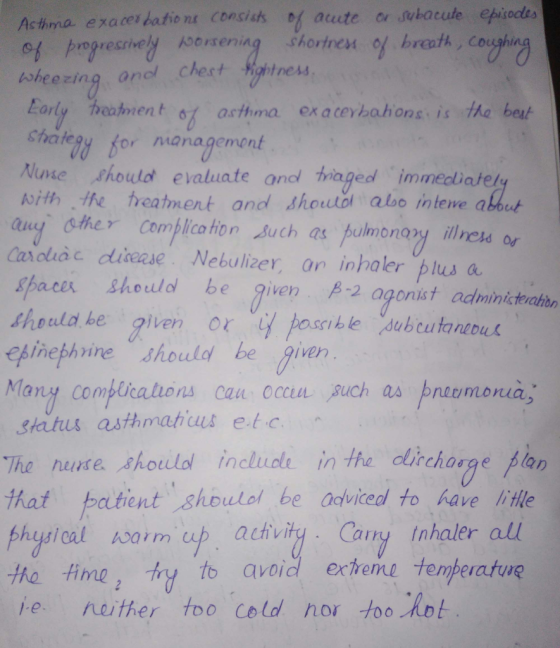 Asthma exacerbations consists of acute or subacute episodes
of progressively worsening shortness of breath, coughing
wheezing and chest tightness.
Early treatment of asthma exacerbations is the best
strategy for management
Nurse should evaluate and triaged immediately
with the treatment and should also interve about
any other complication such as pulmonary illness or
cardiac disease. Nebulizer, an inhaler plus a
spacer should be given. β-2 agonist administeration
should be given or if possible subcutaneous
epinephrine should be given.
Many complications can occur such as pneumonia,
status asthmaticus e.t.c.
The nurse should include in the discharge plan
that patient should be adviced to have little
physical warm up activity. Carry inhaler all
the time, try to avoid extreme temperature
i.e. neither too cold nor too hot.